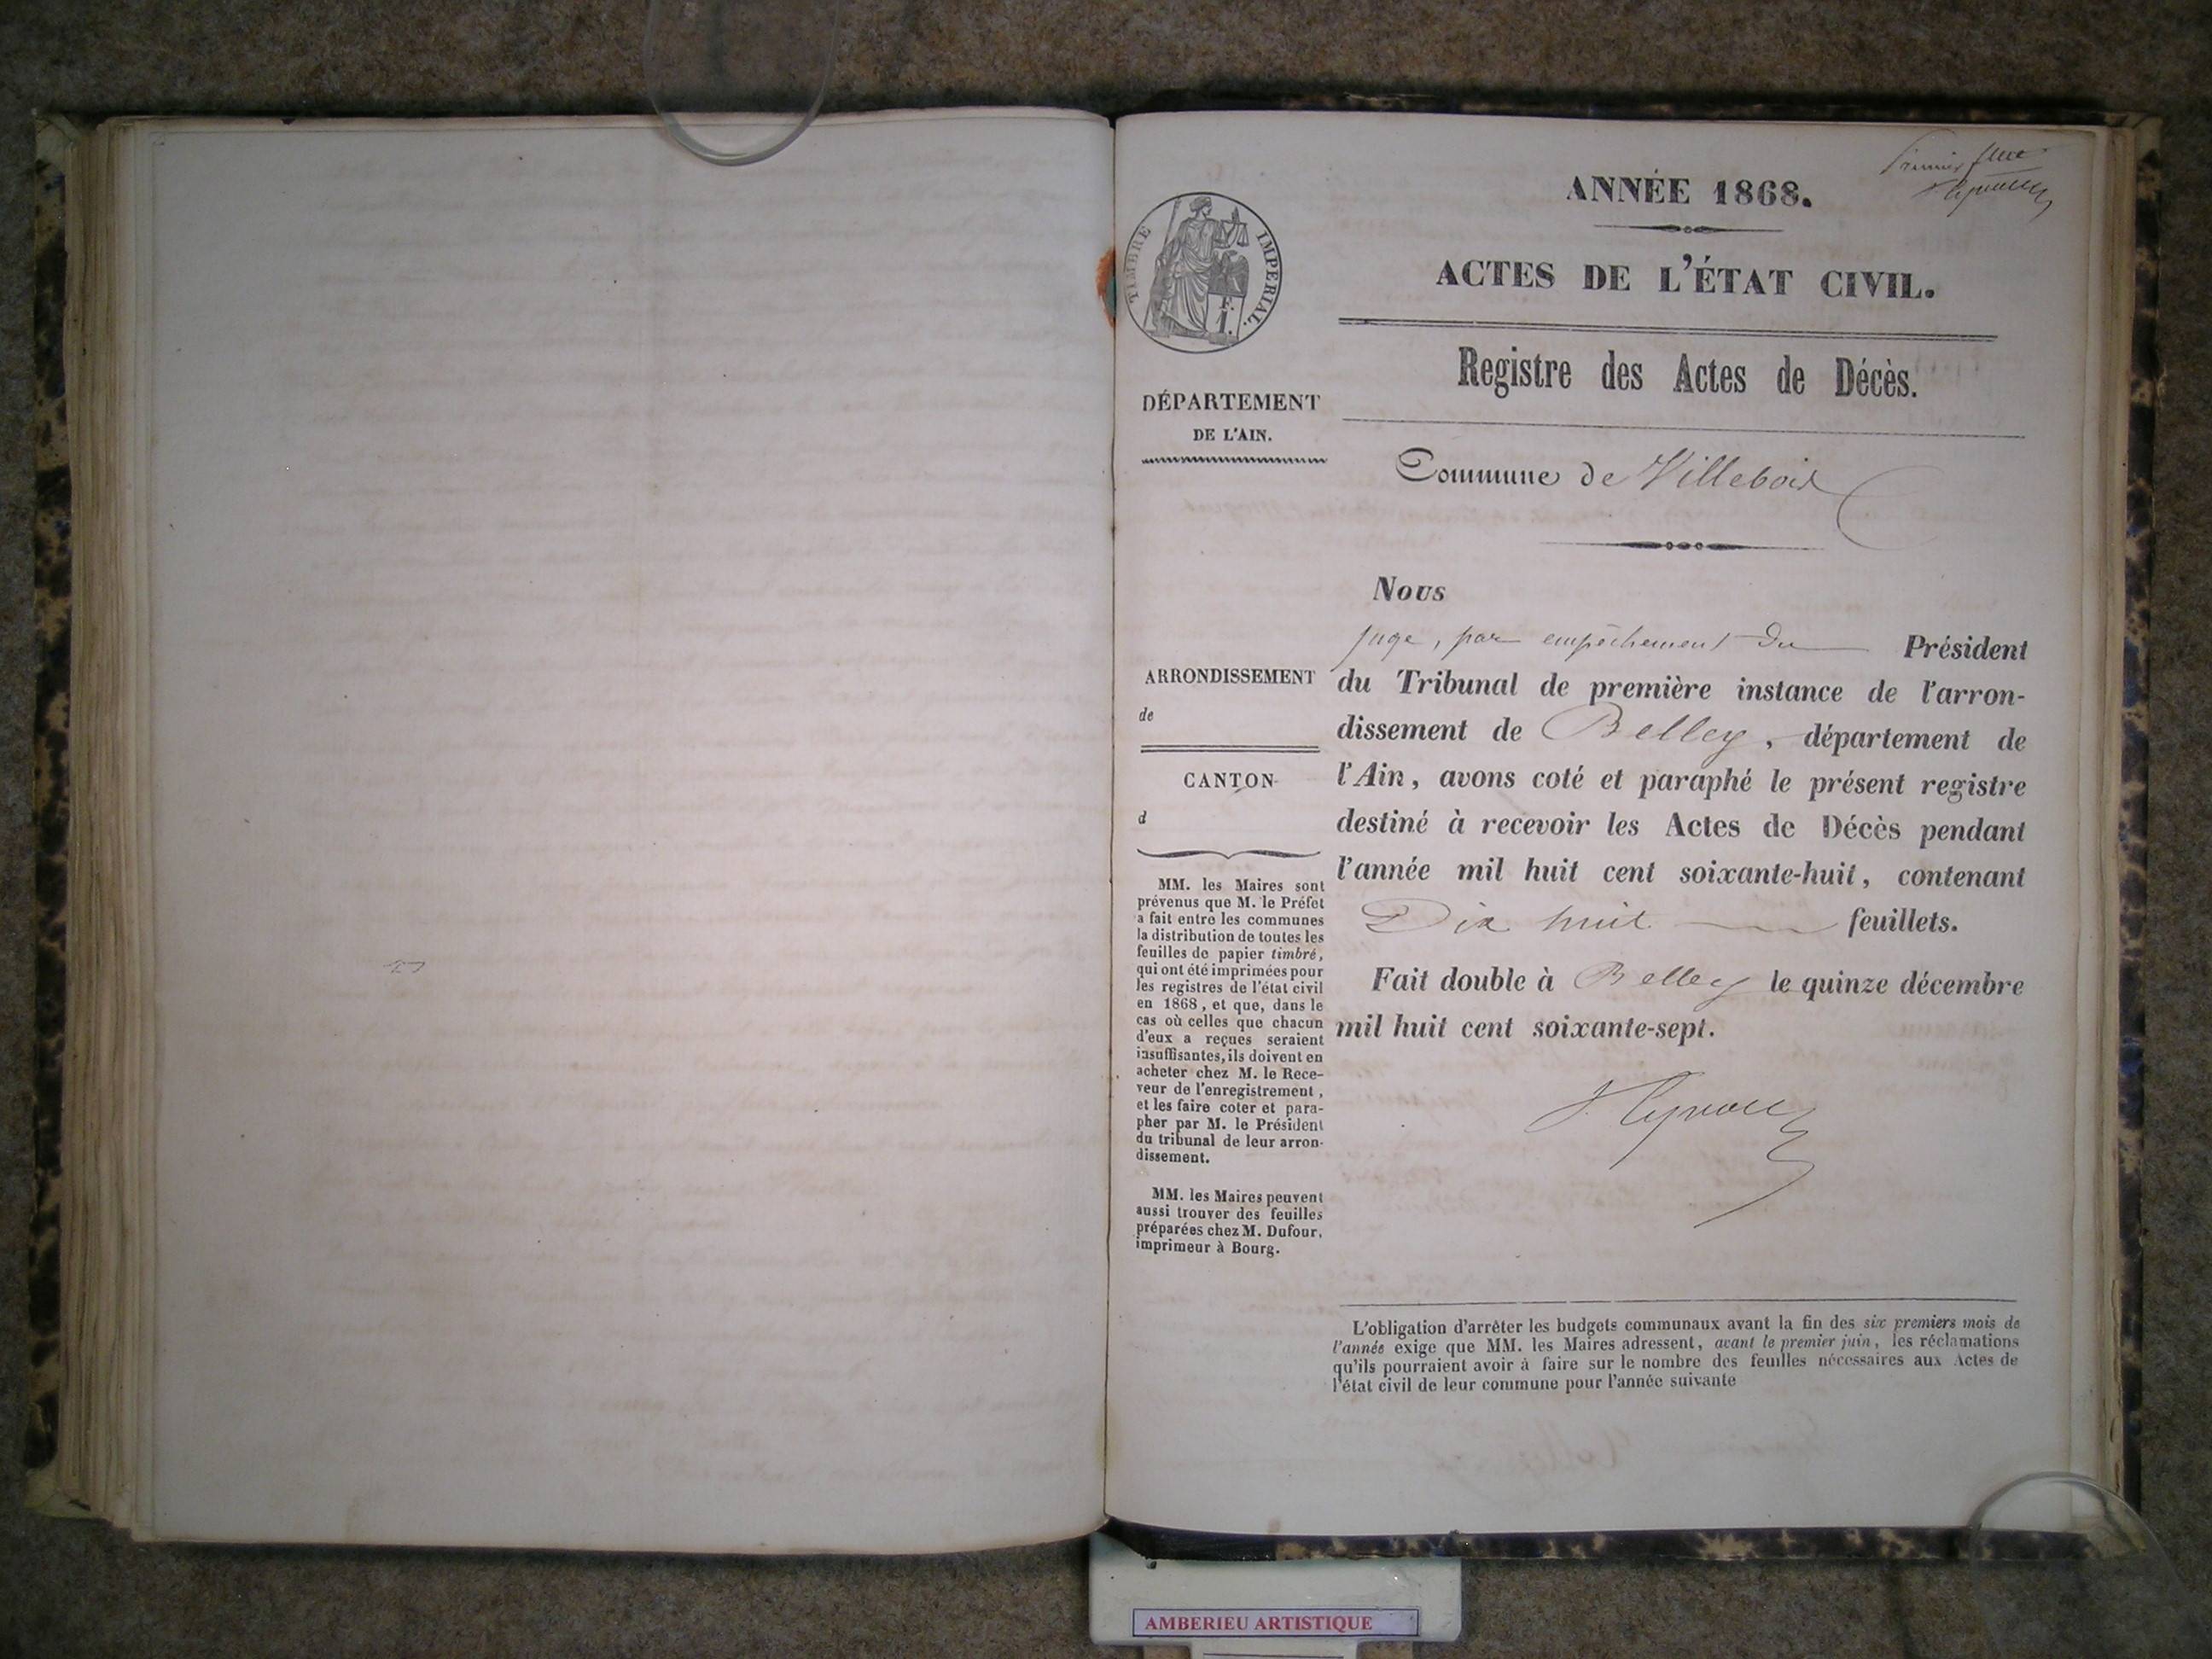 Premier
ANNÉE 1868.
ACTES DE L'ÉTAT CIVIL.
TIMBRE IMPERIAL.
Registre des Actes de Décès.
DÉPARTEMENT
DE L'AIN.
Commune de Villebois
Nous
juge, par empêchement du Président
du Tribunal de première instance de l'arron-
dissement de Belley, département de
l'Ain, avons coté et paraphé le présent registre
destiné à recevoir les Actes de Décès pendant
l'année mil huit cent soixante-huit, contenant
Dix huit feuillets.
Fait double à Belley le quinze décembre
mil huit cent soixante-sept.
ARRONDISSEMENT
de
CANTON
d
MM. les Maires sont
prévenus que M. le Préfet
a fait entre les communes
la distribution de toutes les
feuilles de papier timbré,
qui ont été imprimées pour
les registres de l'état civil
en 1868, et que, dans le
cas où celles que chacun
d'eux a reçues seraient
insuffisantes, ils doivent en
acheter chez M. le Rece-
veur de l'enregistrement,
et les faire coter et para-
pher par M. le Président
du tribunal de leur arron-
dissement.
MM. les Maires peuvent
aussi trouver des feuilles
préparées chez M. Dufour,
imprimeur à Bourg.
L'obligation d'arrêter les budgets communaux avant la fin des six premiers mois de
l'année exige que MM. les Maires adressent, avant le premier juin, les réclamations
qu'ils pourraient avoir à faire sur le nombre des feuilles nécessaires aux Actes de
l'état civil de leur commune pour l'année suivante
AMBERIEU ARTISTIQUE